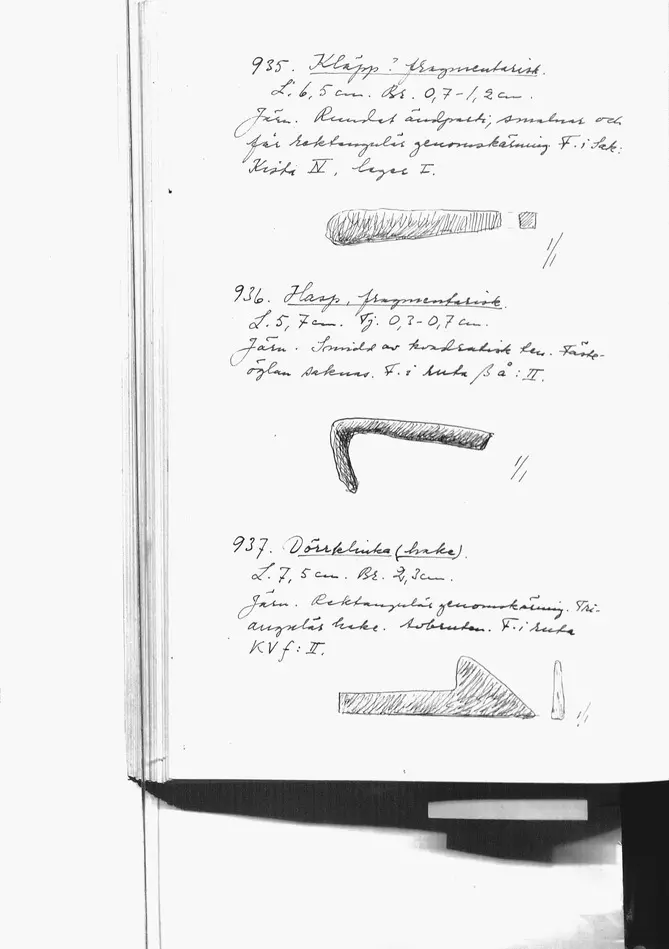 935. Kläpp? fragmentarisk.
L. 6,5 cm. Br. 0,7-1,2 cm.
Järn. Rundat ändparti, smalnar och
får rektangulär genomskärning F. i Sak.
Kista IV, lager I.
1/1
936. Hasp, fragmentarisk.
L. 5,7 cm. Tj. 0,3-0,7 cm.
Järn. Smidd av kvadratisk ten. Fäste-
öglan saknas. F. i ruta ß å : II.
1/1
937. Dörrklinka (hake).
L. 7,5 cm. Br. 2,3 cm.
Järn. Rektangulär genomskärning. Tri-
angulär hake. Avbruten. F. i ruta
KV f : II.
1/1